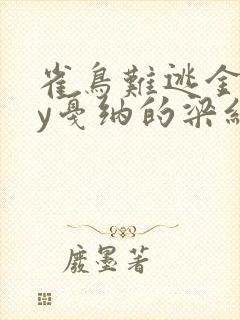 雀鳥難逃金
y戛纳的梁
廢墨著